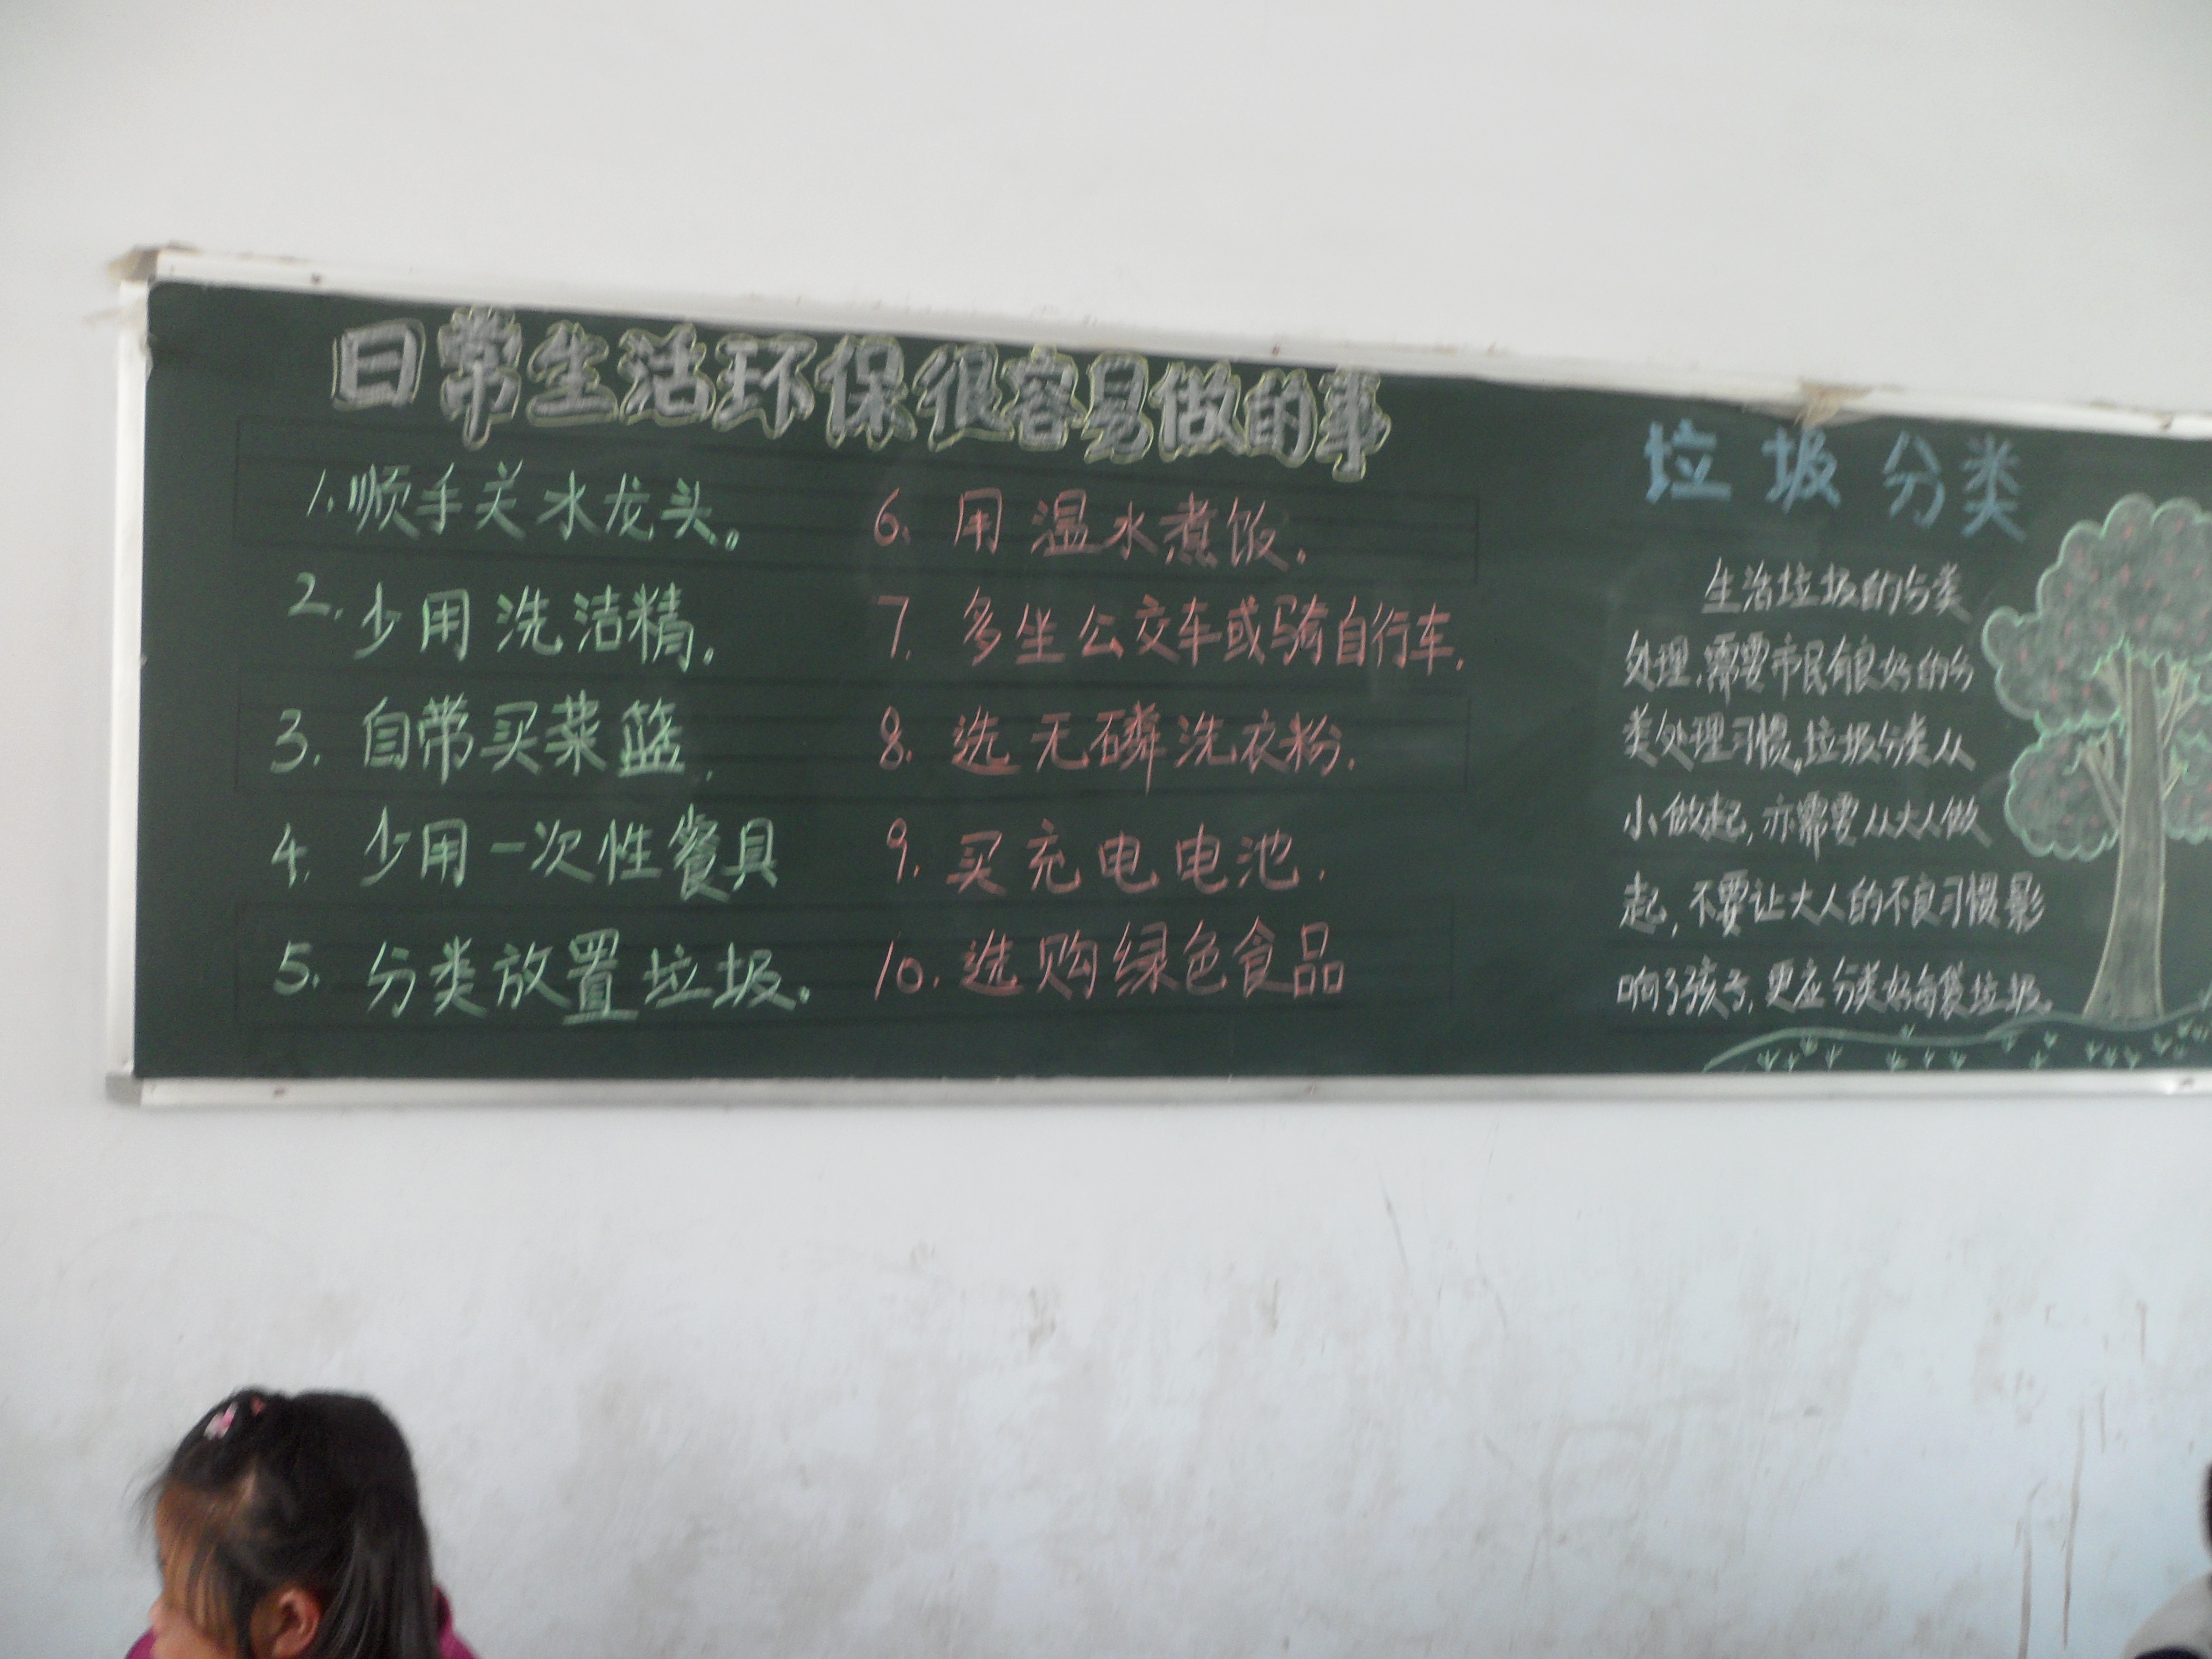 日常生活环保很容易做的事
1.顺手关水龙头。
2.少用洗洁精。
3.自带买菜篮.
4.少用一次性餐具
5.分类放置垃圾。
6.用温水煮饭。
7.多坐公交车或骑自行车.
8.选无磷洗衣粉.
9.买充电电池.
10.选购绿色食品
垃圾分类
生活垃圾的分类
处理,需要市民有良好的分
类处理习惯。垃圾分类从
小做起,亦需要从大人做
起,不要让大人的不良习惯影
响了孩子,更应分类好每袋垃圾。